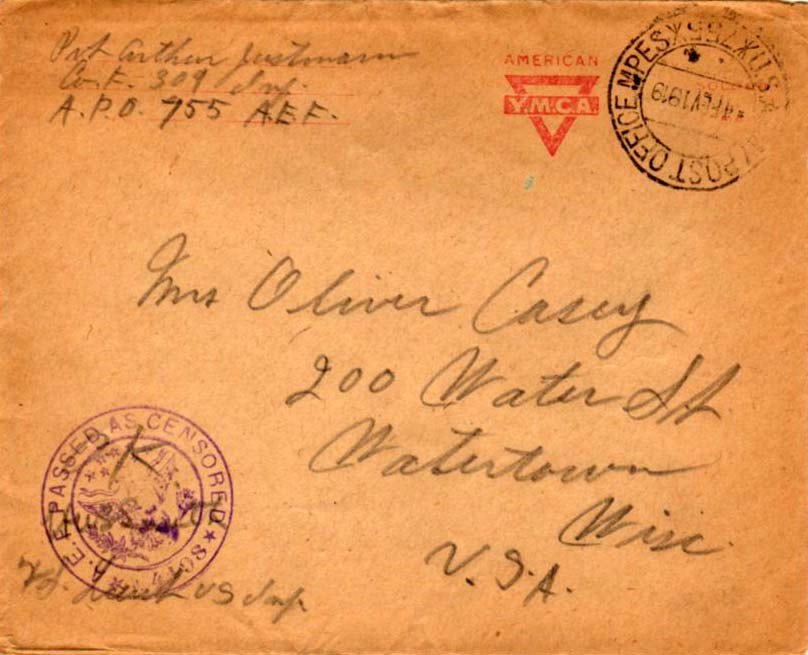 Pvt Arthur Justmann
Co. F. 309 Inf.
A.P.O. 755 A.E.F.
AMERICAN
Y.M.C.A.
POST OFFICE MPES
FEV 1919
Mrs Oliver Casey
200 Water St.
Watertown
Wisc.
U.S.A.
A.E.F. PASSED AS CENSORED
OK
US Inf.